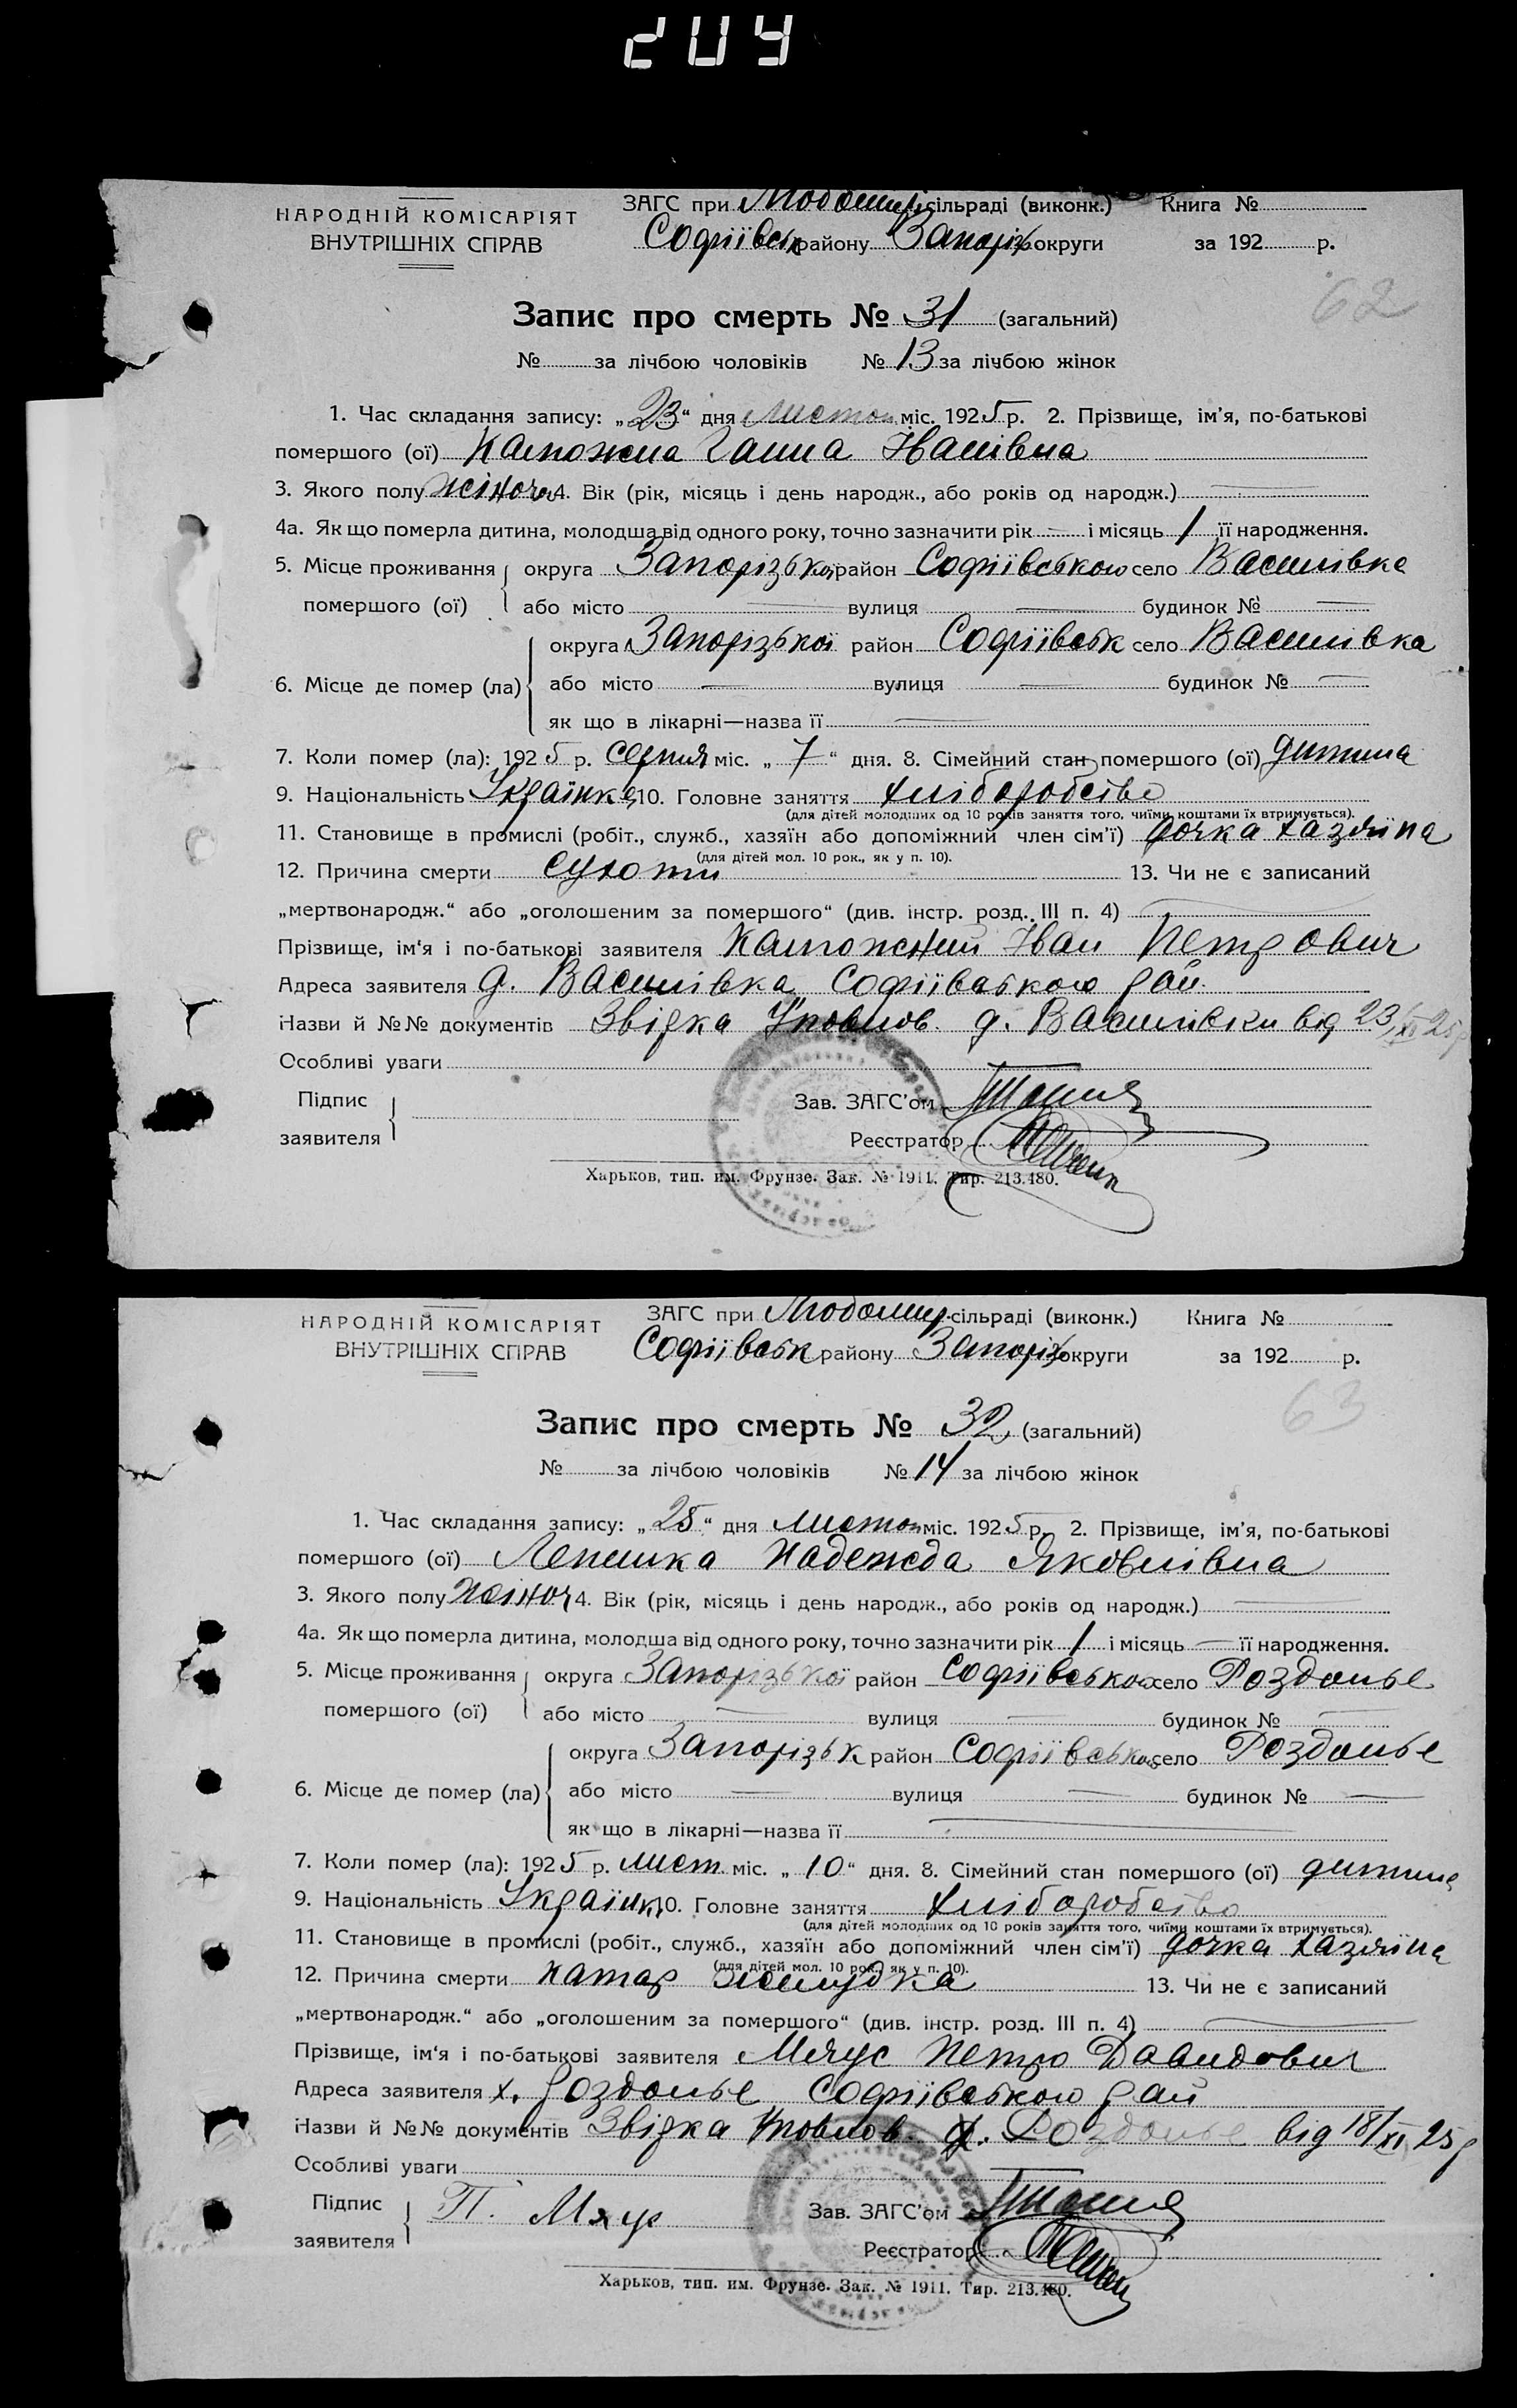 204
НАРОДНІЙ КОМІСАРІЯТ
ВНУТРІШНІХ СПРАВ
ЗАГС при Любомир сільраді (виконк.) Книга №
Софіївськ району Запоріз округи за 192 р.
62
Запис про смерть № 31 (загальний)
№ за лічбою чоловіків № 13 за лічбою жінок
1. Час складання запису: „23“ дня Листоп міс. 1925 р. 2. Прізвище, ім’я, по-батькові
помершого (ої) Калюжна Ганна Іванівна
3. Якого полу жіноч 4. Вік (рік, місяць і день народж., або років од народж.) —
4а. Як що померла дитина, молодша від одного року, точно зазначити рік — і місяць 1 її народження.
5. Місце проживання округа Запорізької район Софіївського село Василівка
помершого (ої) або місто — вулиця — будинок № —
округа Запорізької район Софіївськ село Василівка
6. Місце де помер (ла) або місто — вулиця — будинок № —
як що в лікарні—назва її —
7. Коли помер (ла): 1925 р. серпня міс. „7“ дня. 8. Сімейний стан помершого (ої) дитина
9. Національність Українка 10. Головне заняття хліборобство
(для дітей молодших од 10 років заняття того, чиїми коштами їх втримується).
11. Становище в промислі (робіт., служб., хазяїн або допоміжний член сім’ї) дочка хазяїна
(для дітей мол. 10 рок., як у п. 10).
12. Причина смерти сухоти 13. Чи не є записаний
„мертвонародж.“ або „оголошеним за помершого“ (див. інстр. розд. III п. 4) —
Прізвище, ім’я і по-батькові заявителя Калюжний Іван Петрович
Адреса заявителя д. Василівка Софіївського рай.
Назви й №№ документів Звідка Уповнов. д. Василівки від 23/XI 25р
Особливі уваги
Підпис
заявителя
Зав. ЗАГС’ом
Реєстратор
Харьков, тип. им. Фрунзе. Зак. № 1911. Тир. 213.480.
НАРОДНІЙ КОМІСАРІЯТ
ВНУТРІШНІХ СПРАВ
ЗАГС при Любомир сільраді (виконк.) Книга №
Софіївськ району Запоріз округи за 192 р.
63
Запис про смерть № 32 (загальний)
№ за лічбою чоловіків № 14 за лічбою жінок
1. Час складання запису: „25“ дня Листоп міс. 1925 р. 2. Прізвище, ім’я, по-батькові
помершого (ої) Лепишка Надежда Яковлівна
3. Якого полу жіноч 4. Вік (рік, місяць і день народж., або років од народж.) —
4а. Як що померла дитина, молодша від одного року, точно зазначити рік 1 і місяць — її народження.
5. Місце проживання округа Запорізької район Софіївського село Роздолье
помершого (ої) або місто — вулиця — будинок № —
округа Запорізьк район Софіївського село Роздолье
6. Місце де помер (ла) або місто — вулиця — будинок № —
як що в лікарні—назва її —
7. Коли помер (ла): 1925 р. лист міс. „10“ дня. 8. Сімейний стан помершого (ої) дитина
9. Національність Українк 10. Головне заняття хліборобство
(для дітей молодших од 10 років заняття того, чиїми коштами їх втримується).
11. Становище в промислі (робіт., служб., хазяїн або допоміжний член сім’ї) дочка хазяїна
(для дітей мол. 10 рок., як у п. 10).
12. Причина смерти Катар желудка 13. Чи не є записаний
„мертвонародж.“ або „оголошеним за помершого“ (див. інстр. розд. III п. 4) —
Прізвище, ім’я і по-батькові заявителя Мяус Петро Давидович
Адреса заявителя х. Роздолье Софіївського рай
Назви й №№ документів Звідка Уповнов. х. Роздолье від 18/XI 25р
Особливі уваги
Підпис
заявителя П. Мяус
Зав. ЗАГС’ом
Реєстратор
Харьков, тип. им. Фрунзе. Зак. № 1911. Тир. 213.480.